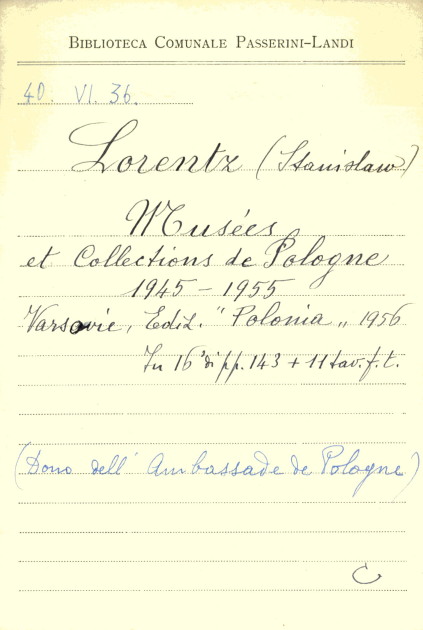 BIBLIOTECA COMUNALE PASSERINI-LANDI
40. VI. 36.
Lorentz (Stanislaw)
Musées
et Collections de Pologne
1945 - 1955
Varsovie, Ediz. "Polonia" 1956
In 16° di pp. 143 + 11 tav. f. t.
(Dono dell' Ambassade de Pologne)
C